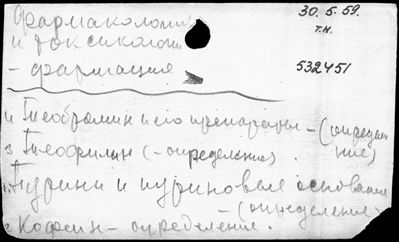 Фармакология
и токсикология
30.5.59.
т.н.
- фармация
532451
4 Теобромин и его препараты - (определе-
ние)
3 Теофилин (- определение).
1. Пурины и пуриновые основания
- (определение)
2 Кофеин - определение.